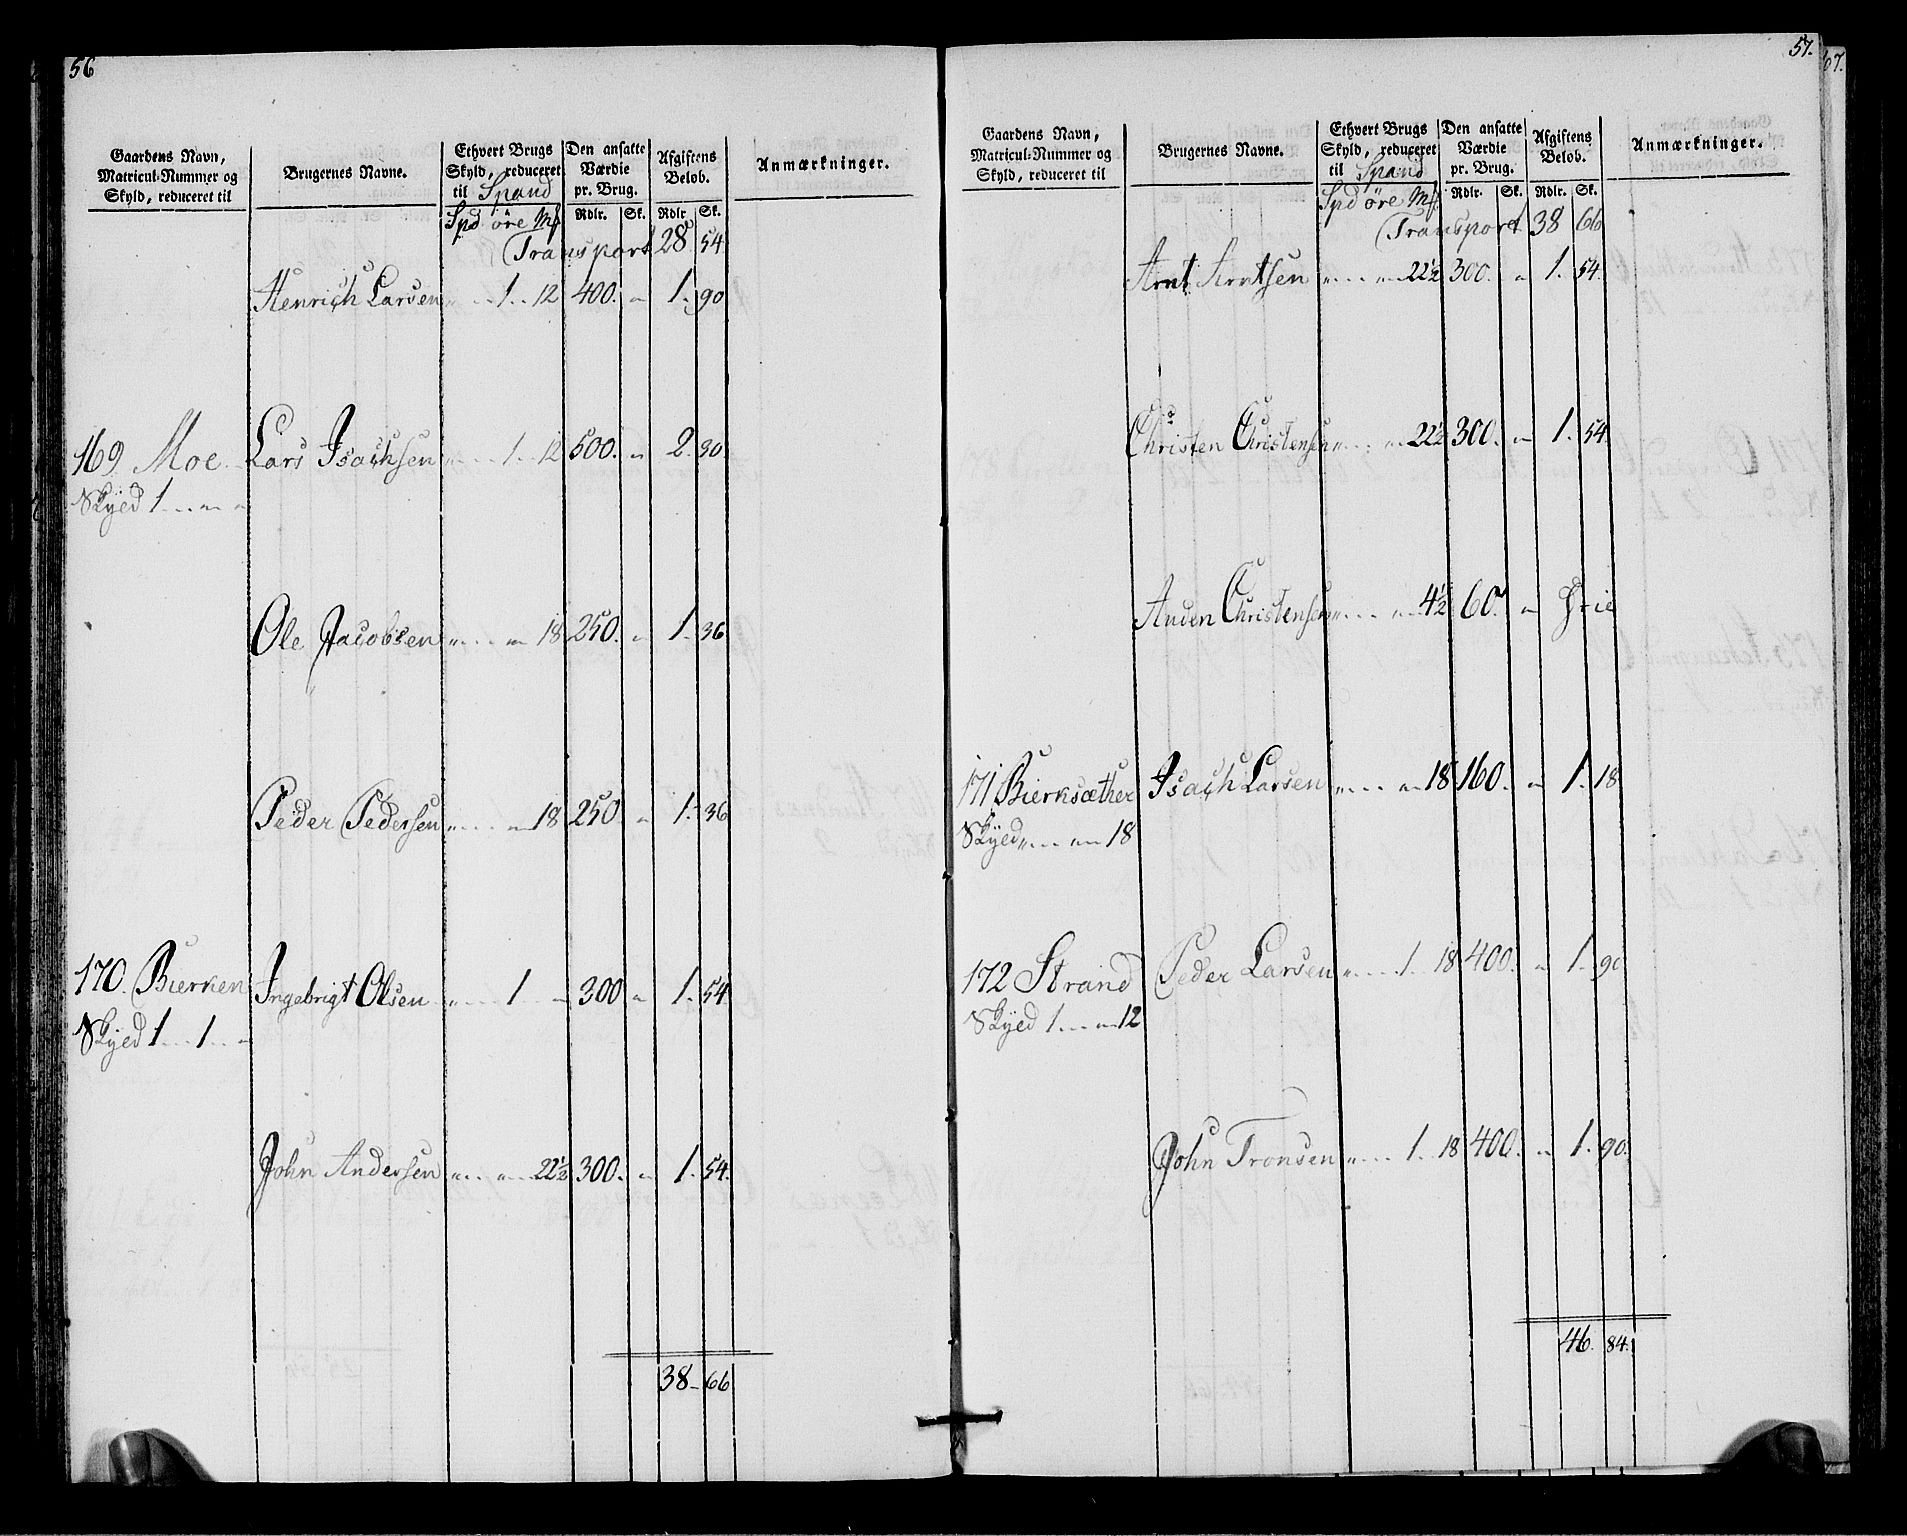 56
Gaardens Navn, Matricul-Nummer og Skyld, reduceret til | Brugernes Navne. | Ethvert Brugs Skyld, reduceret til Spand | Den ansatte Værdie pr. Brug. | Afgiftens Beløb. | Anmærkninger.
Spd öre Mf | Rdlr. | Sk. | Rdlr. | Sk.
Transport 28 54
Henrich Larsen „ 1 „ 12 400. „ 1. 90
169 Moe Lars Isachsen „ 1 „ 12 500. „ 2. 30
Skyld 1 „ „
Ole Jacobsen „ „ 18 250. „ 1. 36
Peder Pedersen „ „ 18 250 „ 1. 36
170. Bierken Ingebrigt Olsen „ 1 „ 300 „ 1. 54
Skyld 1 „ 1 „
John Andersen „ „ 22½ 300. „ 1. 54.
38 „ 66
57.
67.
Gaardens Navn, Matricul-Nummer og Skyld, reduceret til | Brugernes Navne. | Ethvert Brugs Skyld, reduceret til Spand | Den ansatte Værdie pr. Brug. | Afgiftens Beløb. | Anmærkninger.
Spd öre Mf | Rdlr. | Sk. | Rdlr. | Sk.
Transport 38 66
Arnt Arntsen „ „ 22½ 300. „ 1. 54.
Christen Christensen „ „ 22½ 300. „ 1. 54
Christensen „ „ 4½ 60. „ Frie
171 Bierksæther Isach Larsen „ „ 18 160. „ 1. 18
Skyld „ „ 18
172 Strand Peder Larsen „ 1. 18 400. „ 1. 90
Skyld 1 „ 12
John Tronsen „ 1. 18 400. „ 1. 90.
46. 84.